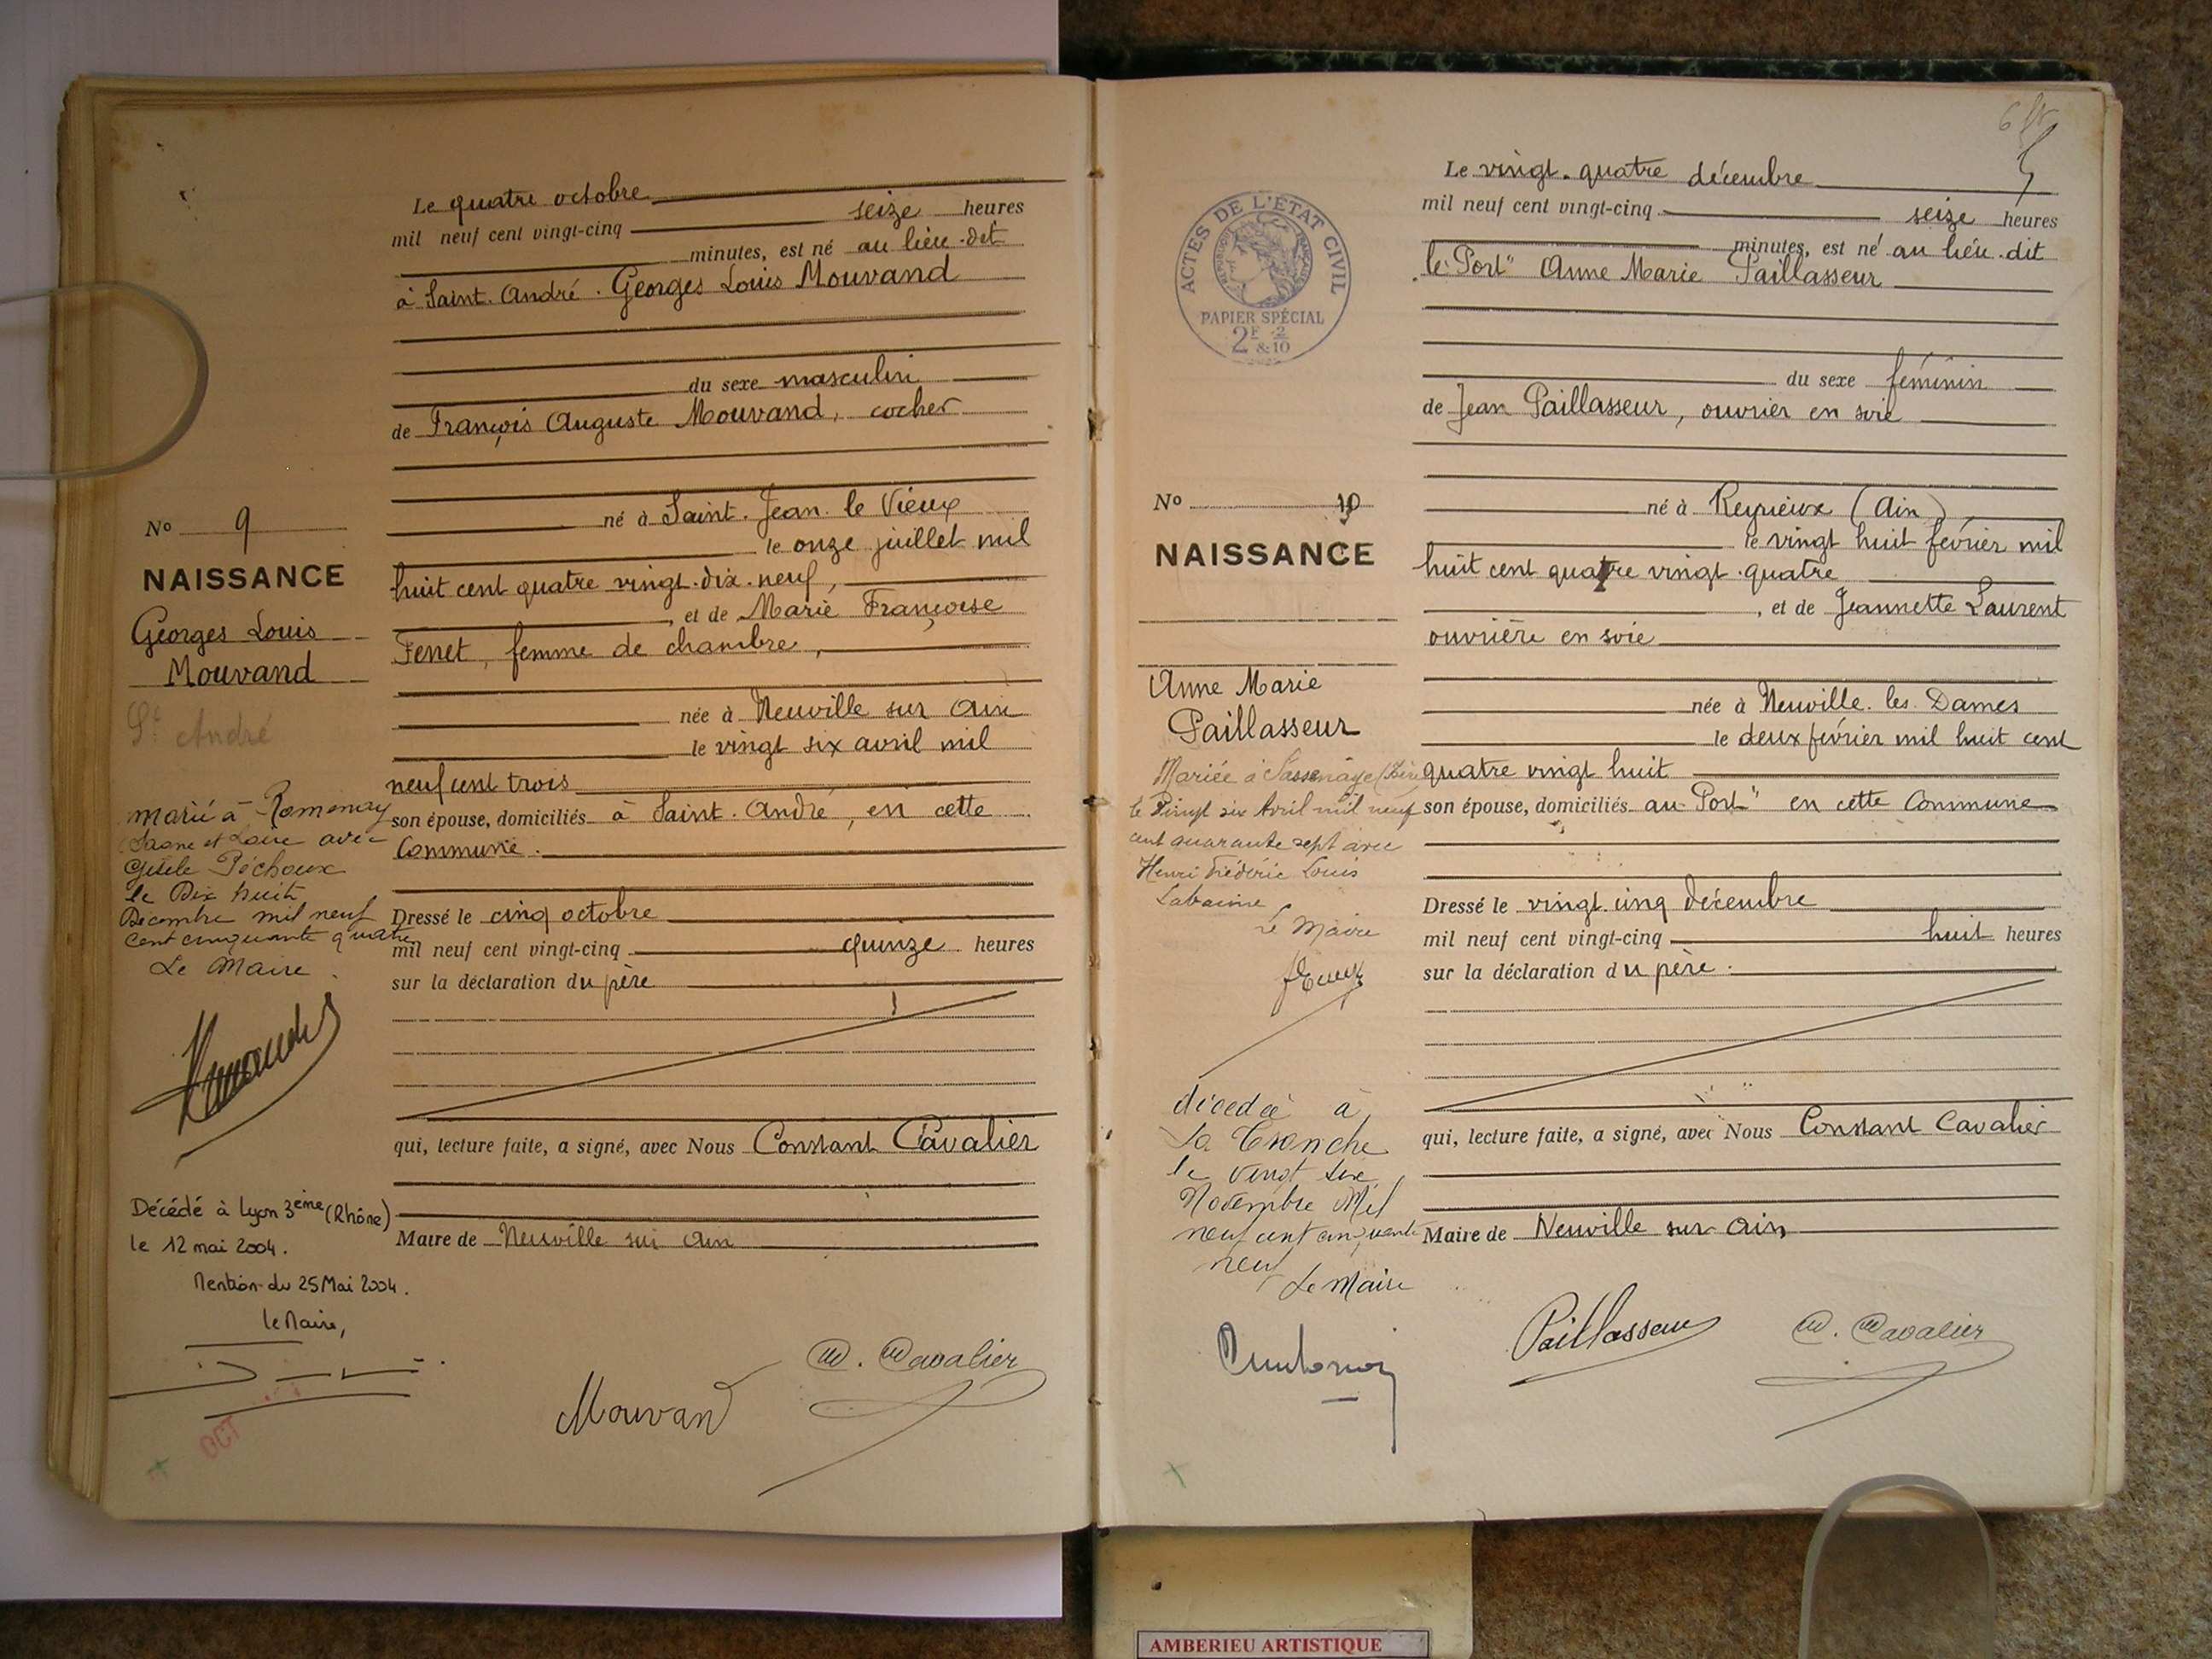 Le quatre octobre
mil neuf cent vingt-cinq seize heures
minutes, est né au lieu-dit
à Saint-André. Georges Louis Mouvand
du sexe masculin
de François Auguste Mouvand, cocher
né à Saint-Jean-le Vieux
le onze juillet mil
huit cent quatre vingt-dix-neuf,
, et de Marie Françoise
Fenet, femme de chambre,
née à Neuville sur Ain
le vingt six avril mil
neuf cent trois
son épouse, domiciliés à Saint-André, en cette
Commune.
Dressé le cinq octobre
mil neuf cent vingt-cinq quinze heures
sur la déclaration du père
qui, lecture faite, a signé, avec Nous Constant Cavalier
Maire de Neuville sur Ain
Mouvand
C. Cavalier
No 9
NAISSANCE
Georges Louis
Mouvand
St André
marié à Romenay
Saone et Loire avec
Gisèle Péchoux
le Dix huit
Décembre mil neuf
cent cinquante quatre
Le Maire
Décédé à Lyon 3ème (Rhône)
le 12 mai 2004.
Mention du 25 Mai 2004.
le Maire,
OCT
Le vingt-quatre décembre
mil neuf cent vingt-cinq seize heures
minutes, est né au lieu-dit
le "Port" Anne Marie Paillasseur
du sexe féminin
de Jean Paillasseur, ouvrier en soie
né à Reyrieux (Ain)
le vingt huit février mil
huit cent quatre vingt-quatre
, et de Jeannette Laurent
ouvrière en soie
née à Neuville-les-Dames
le deux février mil huit cent
quatre vingt huit
son épouse, domiciliés au "Port" en cette Commune
Dressé le vingt-cinq décembre
mil neuf cent vingt-cinq huit heures
sur la déclaration du père.
qui, lecture faite, a signé, avec Nous Constant Cavalier
Maire de Neuville sur Ain
Paillasseur
C. Cavalier
ACTES DE L'ÉTAT CIVIL
RÉPUBLIQUE FRANÇAISE
PAPIER SPÉCIAL
2F 2
&10
No 10
NAISSANCE
Anne Marie
Paillasseur
Mariée à Sassenage (Isère
le Vingt six Avril mil neuf
cent quarante sept avec
Henri Frédéric Louis
Le Maire
décédée à
La Tronche
le vingt six
Novembre Mil
neuf cent cinquante
neuf
Le Maire
AMBERIEU ARTISTIQUE